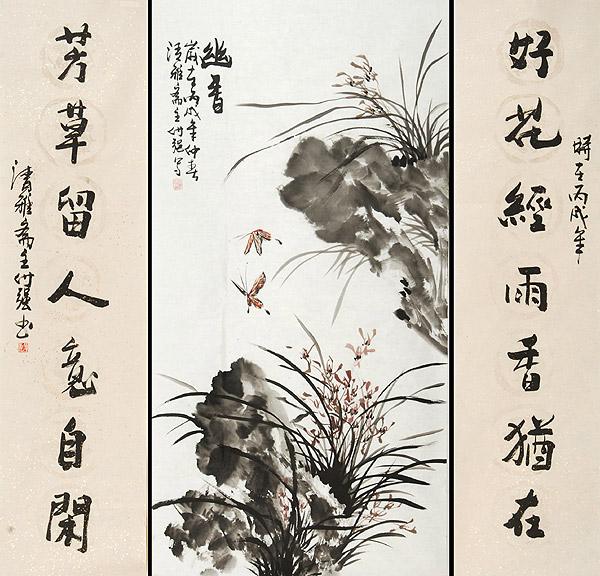 時在丙戌年
好花經雨香猶在
幽香
歲在丙戌年仲春
清雅齋主
芳草留人意自閑
清雅齋主